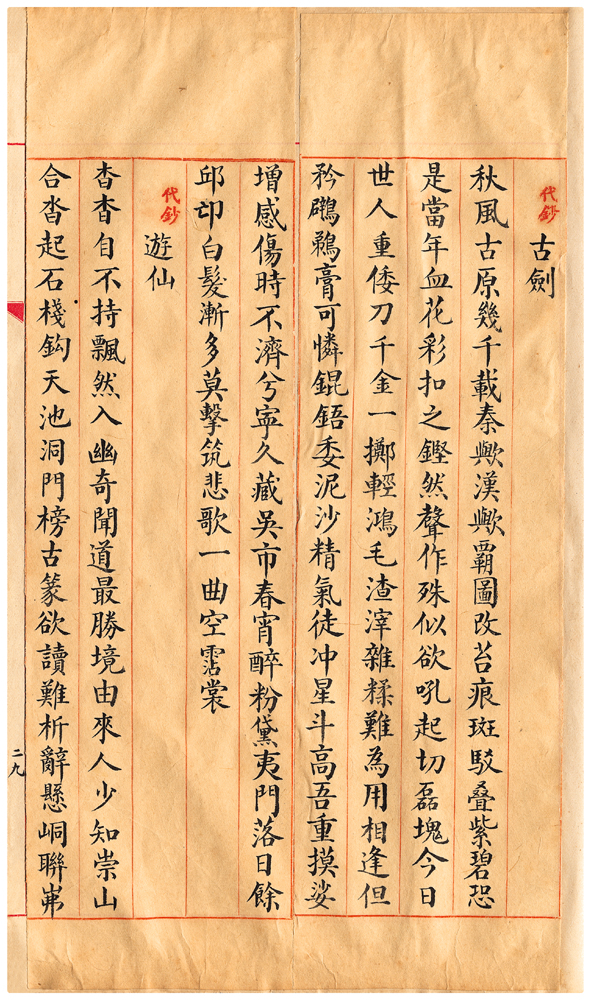 代鈔
古劍
秋風古原幾千載秦歟漢歟霸圖改苔痕斑駁叠紫碧恐
是當年血花彩扣之鏗然聲作殊似欲吼起切磊塊今日
世人重倭刀千金一擲輕鴻毛渣滓雜糅難為用相逢但
矜鸊鵜膏可憐錕鋙委泥沙精氣徒冲星斗高吾重摸娑
增感傷時不濟兮寧久藏吳市春宵醉粉黛夷門落日餘
邱白髮漸多莫擊筑悲歌一曲空霑裳
代鈔
遊仙
杳杳自不持飄然入幽奇聞道最勝境由來人少知崇山
合沓起石棧鈎天池洞門榜古篆欲讀難析辭懸峒聯岪
二九